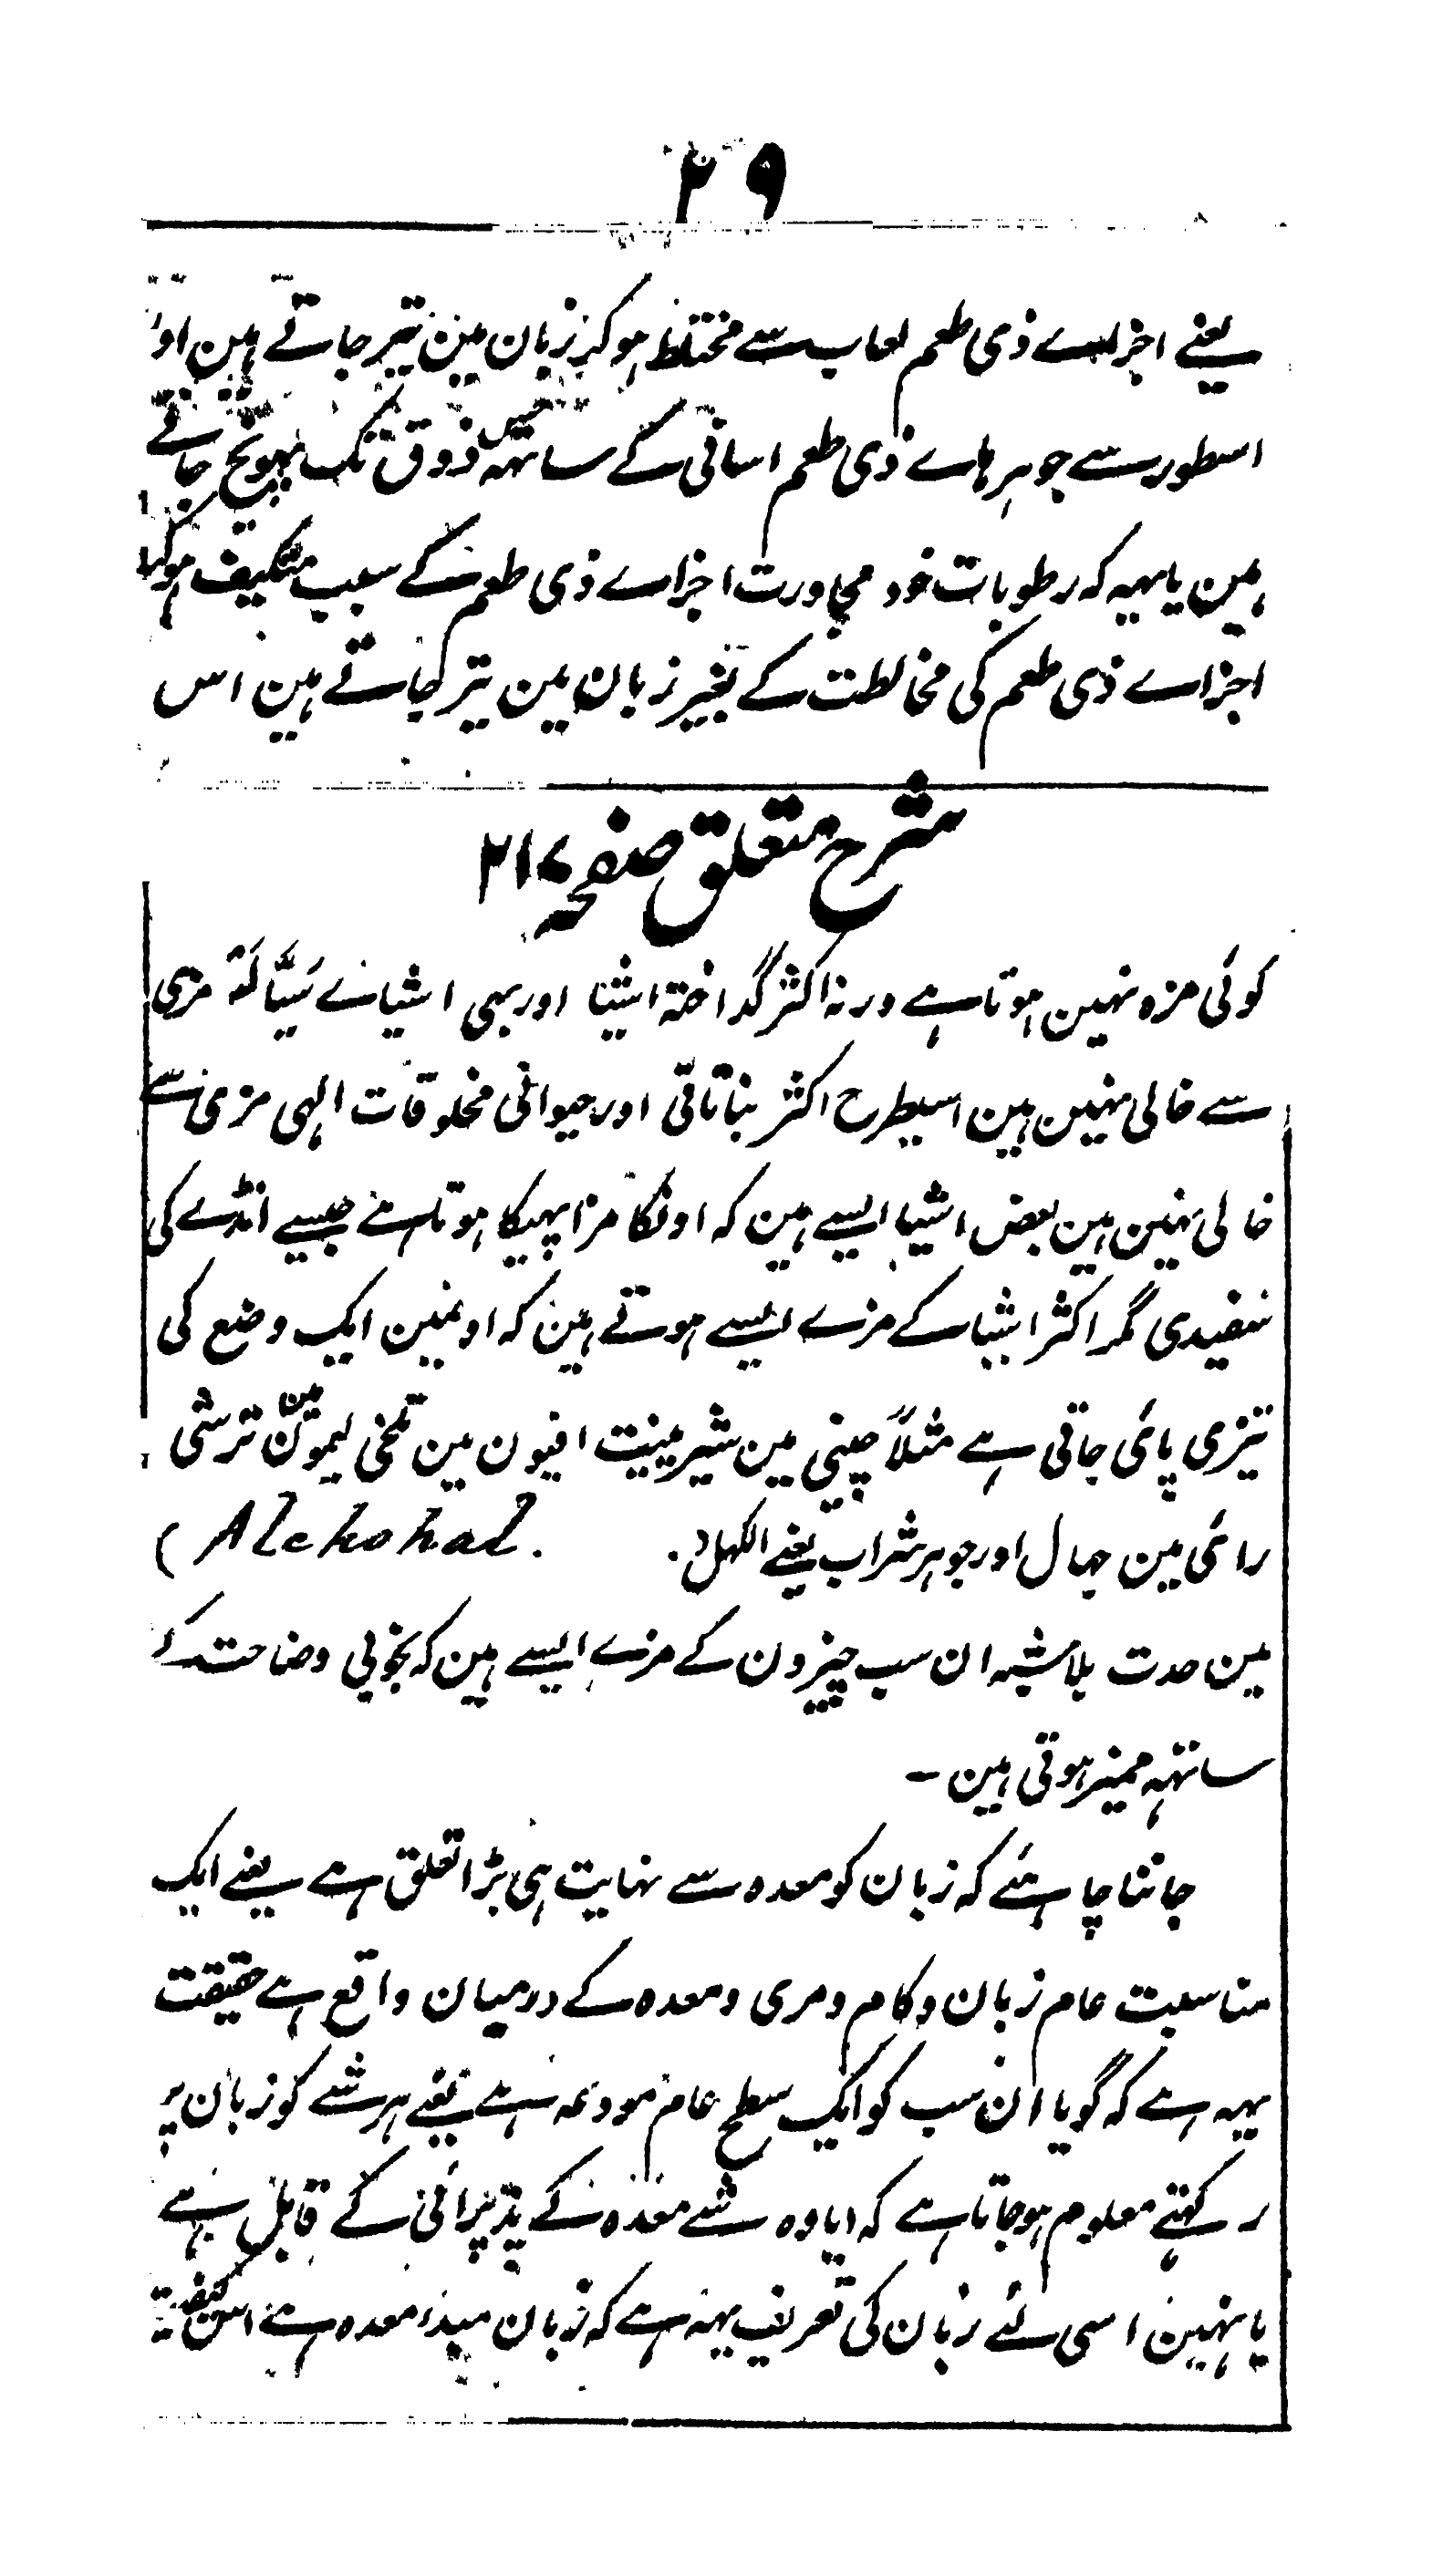 ۲۹
یعنے اجزاے ذی طعم لعاب سے مختلط ہوکر زبان مین تیر جاتے ہین اور
اسطور سے جوہرہاے ذی طعم اسانی کے ساتہہ حس ذوق تک پہونچ جاتے
ہین یا یہہ کہ رطوبات خود مجاورت اجزاے ذی طعم کے سبب متکیف ہوکر
اجزاے ذی طعم کی مخالطت کے بغیر زبان مین تیر جاتے ہین اس
شرح متعلق صفحہ ۲۱۷
کوئی مزہ نہین ہوتا ہے ورنہ اکثر گداختہ اشیا اور بہی اشیاے سَیَّالَہ مزی
سے خالی نہین ہین اسیطرح اکثر نباتاتی اور حیوانی مخلوقات الہی مزی سے
خالی نہین ہین بعض اشیا ایسے ہین کہ اونکا مزا پہیکا ہوتا ہے جیسے انڈے کی
سفیدی مگر اکثر اشیا کے مزے ایسے ہوتے ہین کہ اونمین ایک وضع کی
تیزی پائی جاتی ہے مثلاً چینی مین شیرینیت افیون مین تلخی لیمون مین ترشی
رائی مین جہال اور جوہر شراب یعنے الکہل ( Alcohol.
مین حدت بلاشبہ ان سب چیزون کے مزے ایسے ہین کہ بخوبی وضاحت کے
ساتہہ ممیز ہوتی ہین ۔
جاننا چاہئے کہ زبان کو معدہ سے نہایت ہی بڑا تعلق ہے یعنے ایک
مناسبت عام زبان و کام و مری و معدہ کے درمیان واقع ہے حقیقت
یہہ ہے کہ گویا ان سب کو ایک سطح عام مودعہ ہے یعنے ہر شے کو زبان پر
رکہتے معلوم ہوجاتا ہے کہ ایا وہ شے معدہ کے پذیرائی کے قابل ہے
یا نہین اسی لئے زبان کی تعریف یہہ ہے کہ زبان مبدء معدہ ہے اس کیفیت